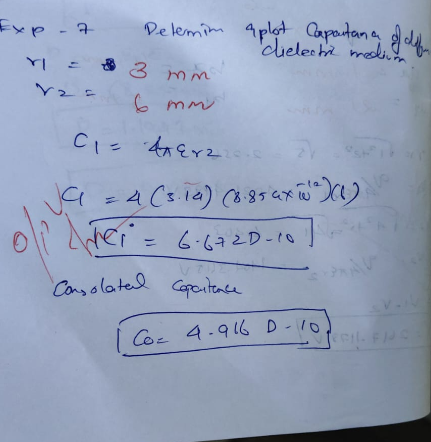 Exp - 7 Determin & plot Capacitance of diffn
dielectric medium
r1 = 3 mm
r2 = 6 mm
C1 = 4πεr2
C1 = 4 (3.14) (8.854x10^-12)(6)
C1 = 6.672D-10
Consolated Capacitance
C0 = 4.916 D-10